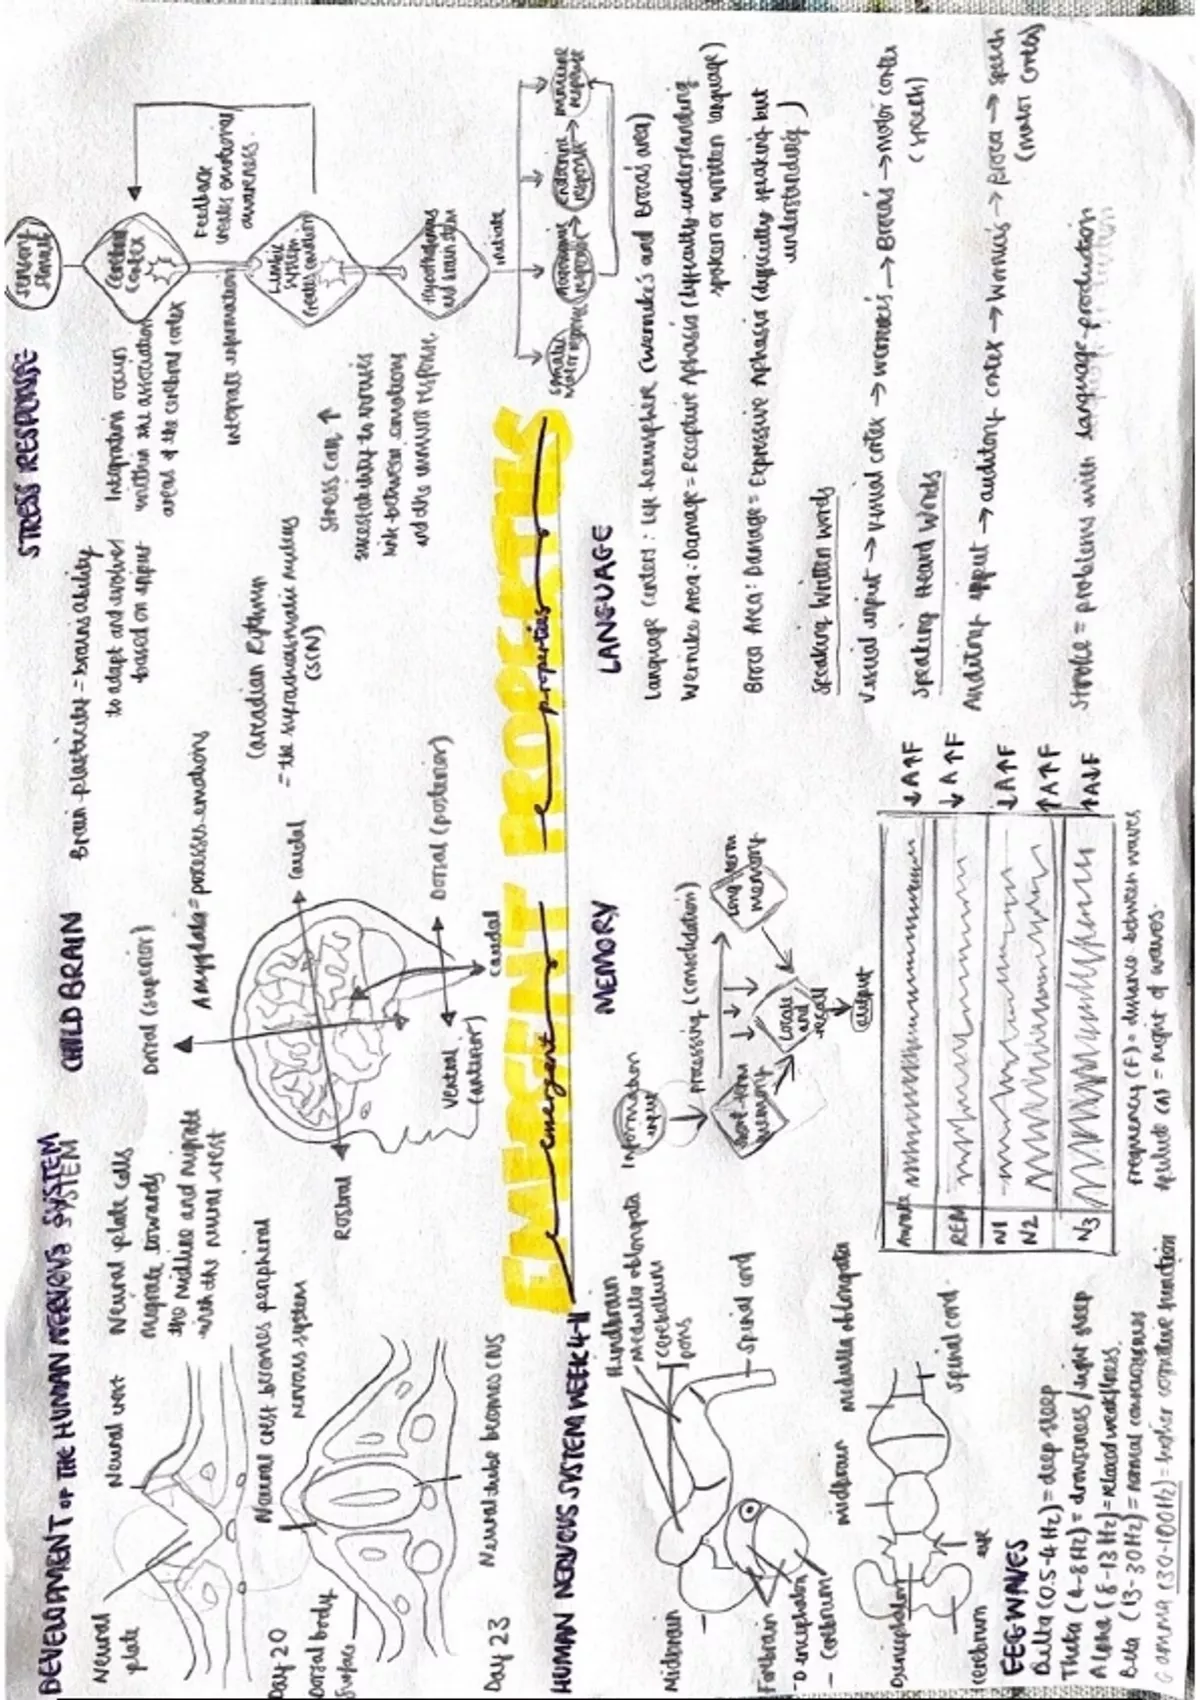 DEVELOPMENT OF THE HUMAN NERVOUS SYSTEM
Neural plate
Neural crest
Neural plate cells
migrate towards
the midline and migrate
with the neural crest
Day 20
Neural crest becomes peripheral
nervous system
Dorsal body
surface
Day 23
Neural tube becomes CNS
CHILD BRAIN
Brain plasticity = brains ability
to adapt and evolves
based on input
Dorsal (superior)
Amygdala = processes emotions
Circadian Rythmn
= the suprachiasmatic nucleus
(SCN)
Rostral
Caudal
Ventral
(anterior)
Dorsal (posterior)
Caudal
STRESS RESPONSE
Integration occurs
within the association
areas of the cerebral cortex
Stress can ↑
link between emotions
and the immune response
Sensory
stimuli
Cerebral
Cortex
Feedback
creates emotional
awareness.
integrate information
Limbic
system
creates emotion
Hypothalamus
and brain stem
initiate
Somatic
motor response
Autonomic
response
Endocrine
response
immune
response
EMERGENT PROPERTIES
emergent properties
HUMAN NERVOUS SYSTEM WEEK 4-11
Hindbrain
- Medulla oblongata
- cerebellum
pons
Spinal cord
Midbrain
Forebrain
- Diencephalon
- Cerebrum
midbrain
Medulla oblongata
Spinal cord
Diencephalon
Cerebrum
eye
EEG WAVES
Delta (0.5-4 Hz) = deep sleep
Theta (4-8Hz) = drowsiness / light sleep
Alpha (8-13 Hz) = relaxed wakefulness.
Beta (13-30Hz) = normal consciousness
Gamma (30-100Hz) = higher cognitive function
MEMORY
Information
input
processing (consolidation)
Short-term
memory
Long term
memory
Locate
and
recall
output
Awake ↓A↑F
REM ↓A↑F
N1 ↓A↑F
N2 ↑A↑F
N3 ↑A↓F
Frequency (F) = distance between waves
(A) = hight of waves.
LANGUAGE
Language Centers: Left hemisphere (Wernicke's and Broca's area)
Wernicke Area: Damage = Receptive Aphasia (difficulty understanding
spoken or written language)
Broca Area: Damage = Expressive Aphasia (difficulty speaking but
understanding)
Speaking Written words
Visual input → visual cortex → wernickes → Broca's → motor cortex
(speech)
Speaking Heard Words
Auditory input → auditory cortex → Wernicks → Broca → speech
(motor cortex)
Stroke = problems with language production